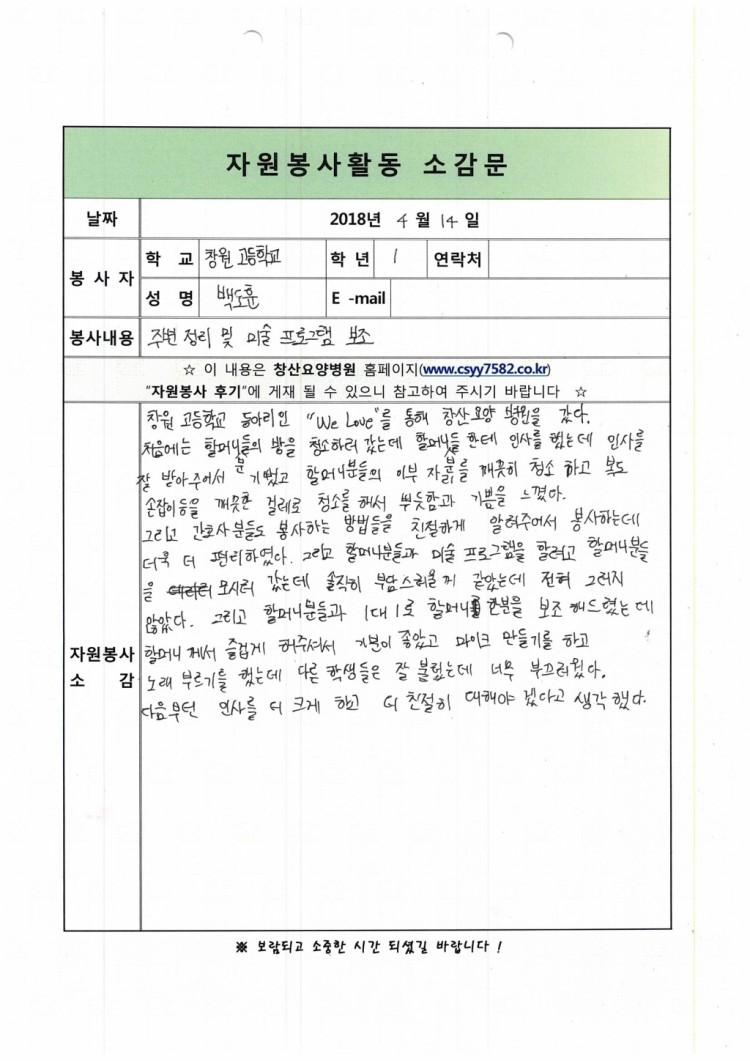 자원봉사활동 소감문
날짜 2018년 4 월 14 일
봉 사 자
학 교 창원 고등학교 학 년 1 연락처
성 명 백도훈 E -mail
봉사내용 주변 정리 및 미술 프로그램 보조
☆ 이 내용은 창산요양병원 홈페이지(www.csyy7582.co.kr)
"자원봉사 후기"에 게재 될 수 있으니 참고하여 주시기 바랍니다 ☆
창원 고등학교 동아리인 "We Love"를 통해 창산요양 병원을 갔다.
처음에는 할머니분들의 방을 청소하러 갔는데 할머니분들 한테 인사를 했는데 인사를
잘 받아주어서 기뻤고 할머니분들의 이부자리를 깨끗히 청소 하고 복도
손잡이등을 깨끗한 걸레로 청소를 해서 뿌듯함과 기쁨을 느꼈다.
그리고 간호사분들도 봉사하는 방법들을 친절하게 알려주어서 봉사하는데
더욱 더 편리하였다. 그리고 할머니분들과 미술 프로그램을 할려고 할머니분들
을 모시러 갔는데 솔직히 부담스러울꺼 같았는데 전혀 그러지
않았다. 그리고 할머니분들과 1대1로 할머니 한분을 보조 해드렸는데
할머니 께서 즐겁게 해주셔서 기분이 좋았고 마이크 만들기를 하고
노래 부르기를 했는데 다른 학생들은 잘 불렀는데 너무 부끄러웠다.
다음부턴 인사를 더 크게 하고 더 친절히 대해야 겠다고 생각했다.
자원봉사
소 감
※ 보람되고 소중한 시간 되셨길 바랍니다 !